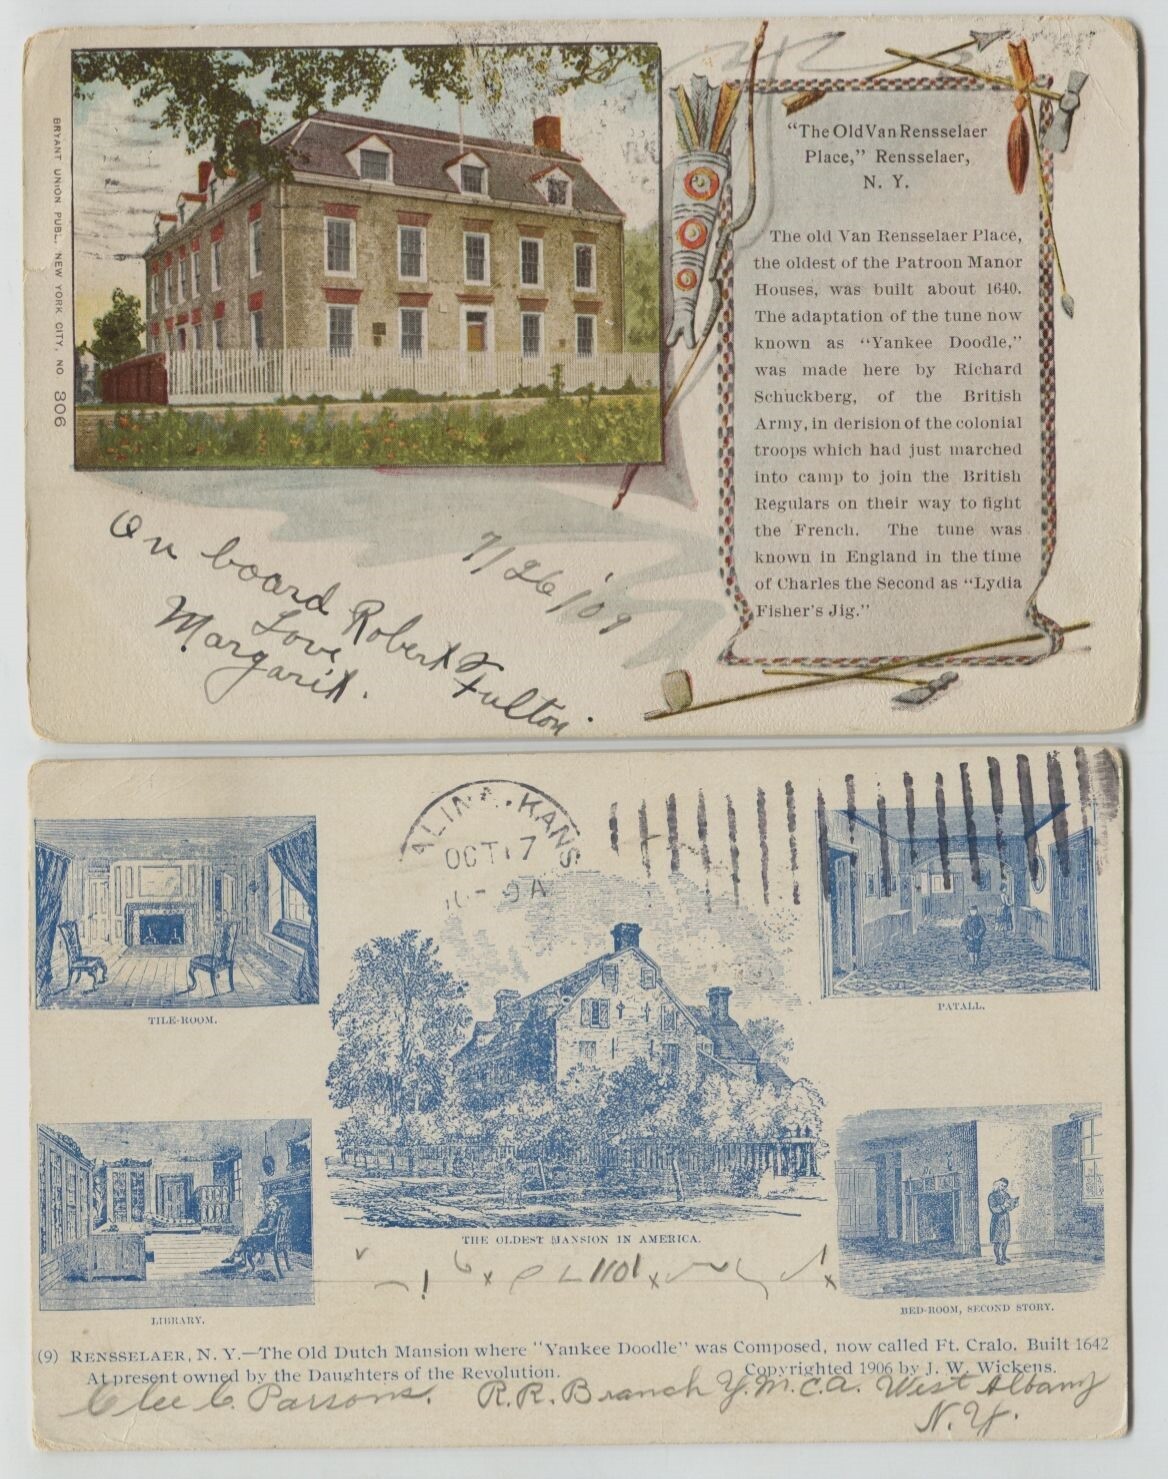 BRYANT UNION PUBL. NEW YORK CITY, NO 806
"The Old Van Rensselaer
Place," Rensselaer,
N. Y.
The old Van Rensselaer Place,
the oldest of the Patroon Manor
Houses, was built about 1640.
The adaptation of the tune now
known as "Yankee Doodle,"
was made here by Richard
Schuckberg, of the British
Army, in derision of the colonial
troops which had just marched
into camp to join the British
Regulars on their way to fight
the French. The tune was
known in England in the time
of Charles the Second as "Lydia
Fisher's Jig."
7/26/'09
On board Robert Fulton.
Love
Margaret.
ALINA, KANS
OCT 17
TILE-ROOM.
PATALL.
THE OLDEST MANSION IN AMERICA.
LIBRARY.
BED-ROOM, SECOND STORY.
(9) RENSSELAER, N. Y.—The Old Dutch Mansion where "Yankee Doodle" was Composed, now called Ft. Cralo. Built 1642
At present owned by the Daughters of the Revolution. Copyrighted 1906 by J. W. Wickens.
C. Parsons. R.R. Branch Y.M.C.A. West Albany
N.Y.